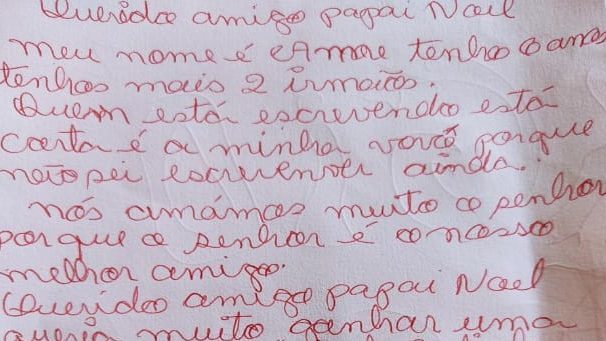 Querido amigo papai Noel
meu nome é tenho anos
tenhos mais 2 irmaõs.
Quem está escrevendo está
carta é a minha vovó porque
não sei escrever ainda.
nós amámos muito o senhor
porque o senhor é o nosso
melhor amigo.
Querido amigo papai Noel
queria muito ganhar uma